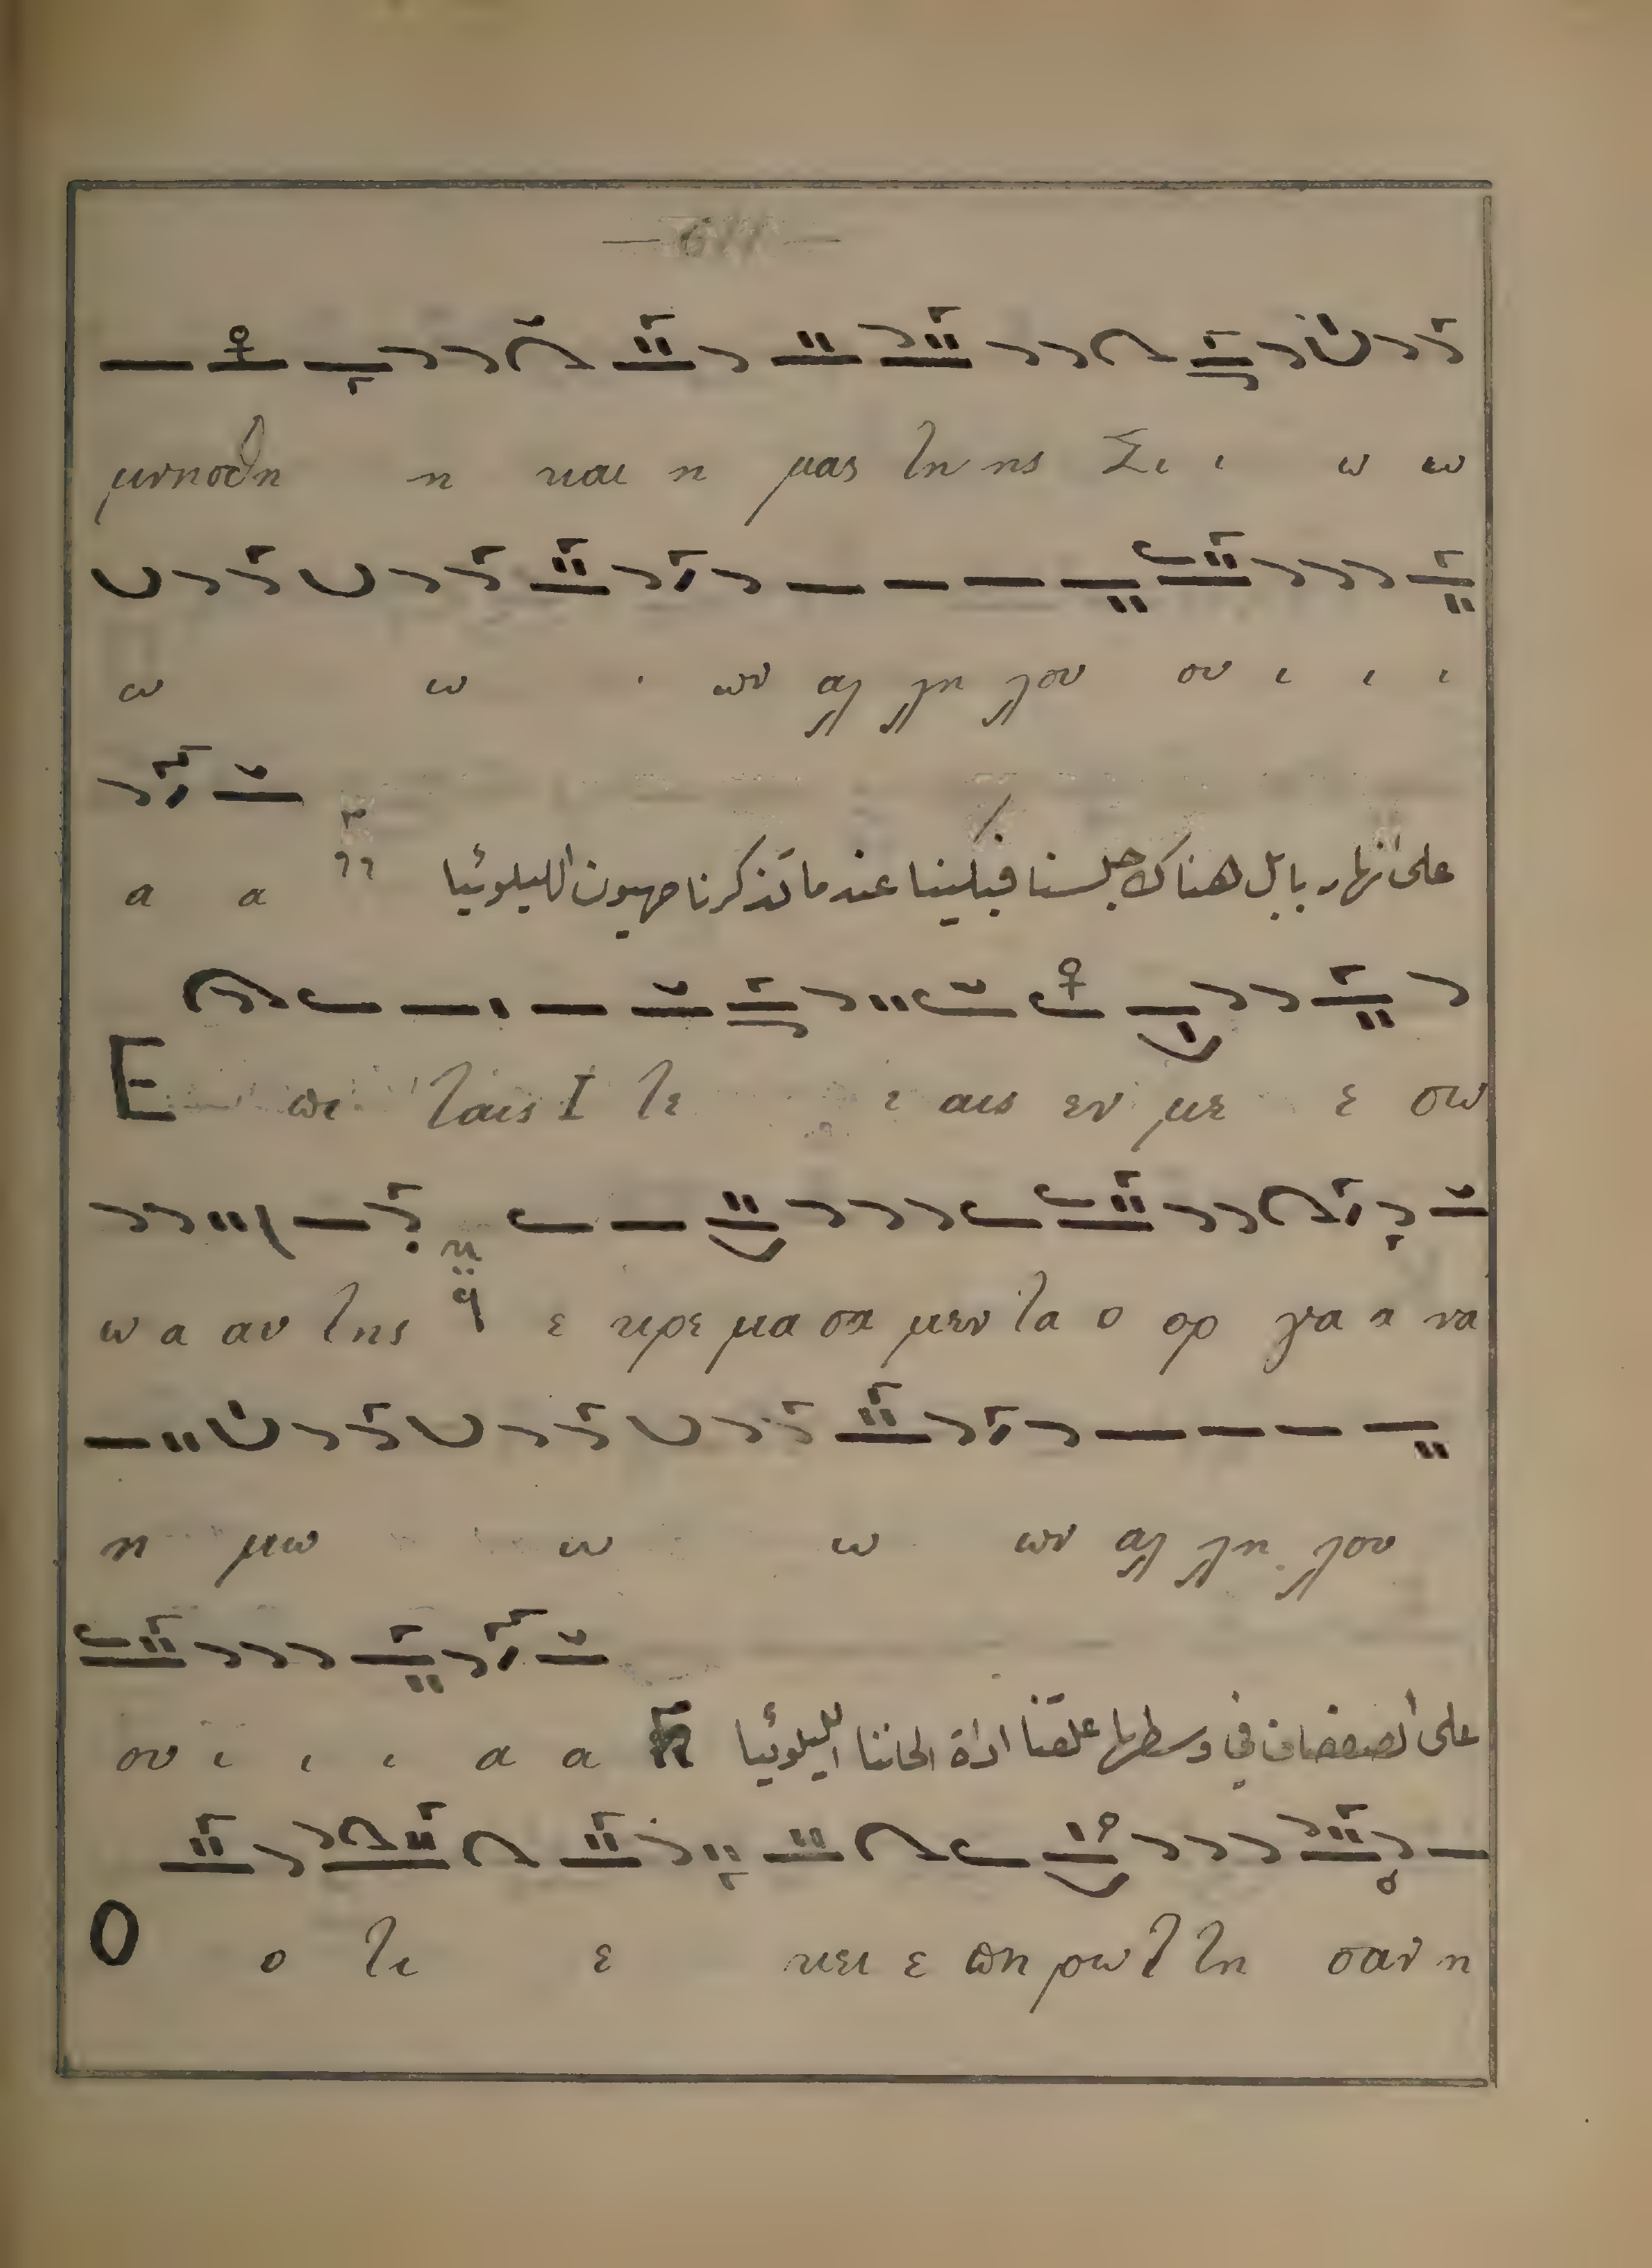 μνησθη η και η μας τη ης Σι ι ω ω
ω ω ων αλ λη λου ου ι ι ι
α α
على انهار بابل هناك جلسنا فبكينا عندما تذكرنا صهيون الليلوئيا
Ε πι ταις Ι τε ε αις εν με ε σω
ω α αυ της ε κρε μα σα μεν τα ο ορ γα α να
η μω ω ω ων αλ λη λου
ου ι ι ι α α
على الصفصاف في وسطها علقنا اداة الحاننا الليلوئيا
Ο ο τι ε κει ε πη ρω τ τη σαν η